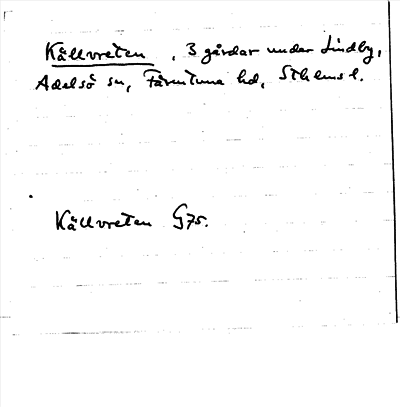 Källvreten, 3 gårdar under Lindby,
Adelsö sn, Färentuna hd, Sthlms l.
Källvreten G75.